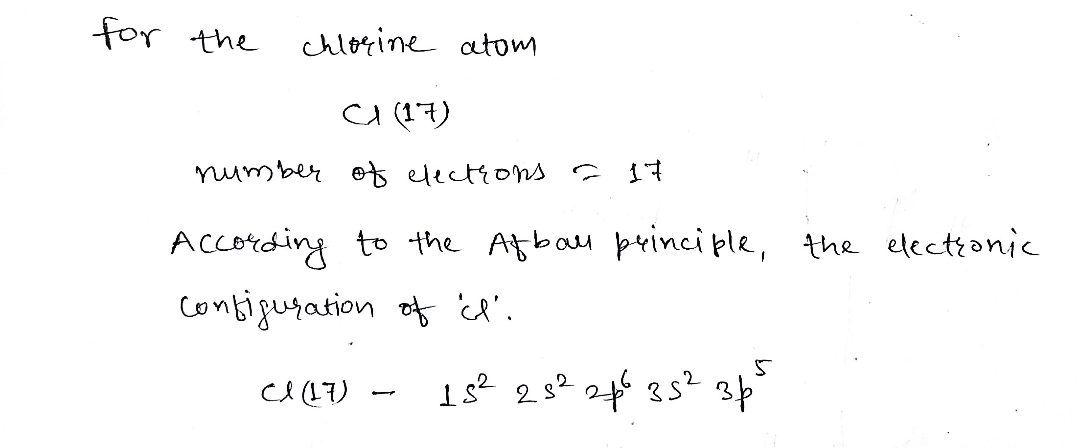 for the chlorine atom
Cl (17)
number of electrons = 17
According to the Afbau principle, the electronic
configuration of 'cl'.
Cl (17) - 1s² 2s² 2p⁶ 3s² 3p⁵